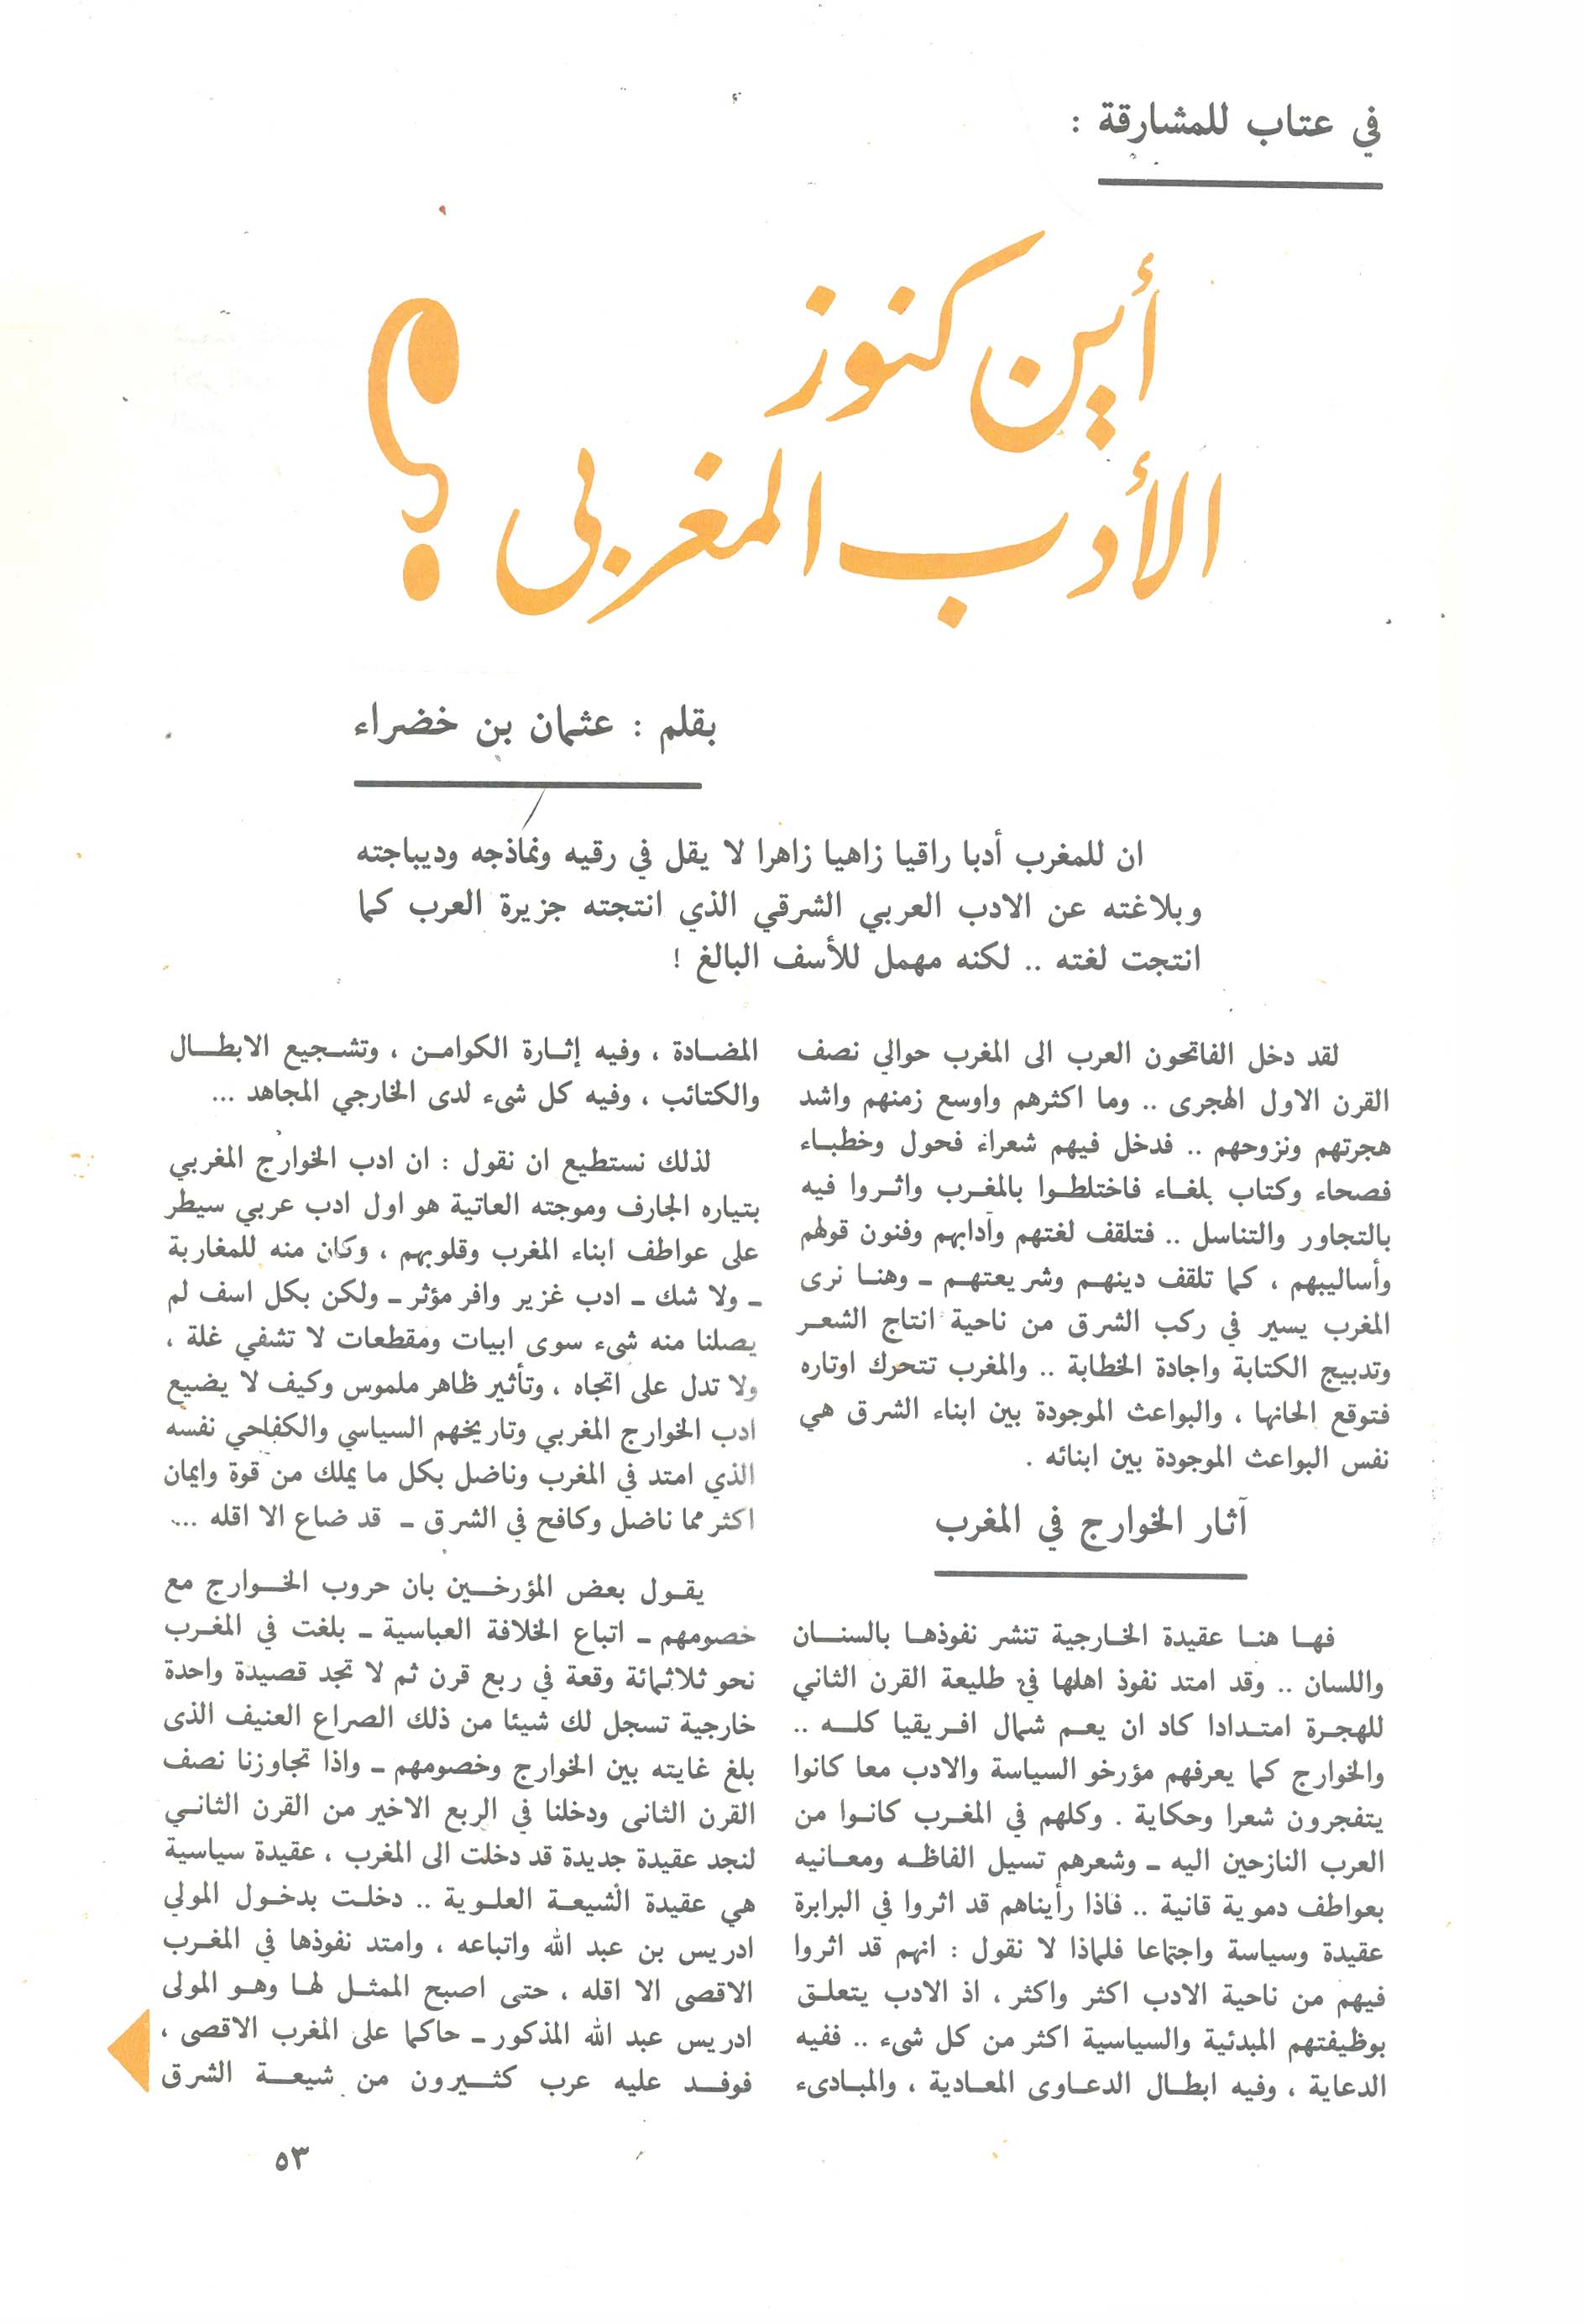 في عتاب للمشارقة :
أين كنوز
الأدب المغربي ؟
بقلم : عثمان بن خضراء
ان للمغرب أدبا راقيا زاهيا زاهرا لا يقل في رقيه ونماذجه وديباجته
وبلاغته عن الادب العربي الشرقي الذي انتجته جزيرة العرب كما
انتجت لغته .. لكنه مهمل للأسف البالغ !
لقد دخل الفاتحون العرب الى المغرب حوالي نصف
القرن الاول الهجرى .. وما اكثرهم واوسع زمنهم واشد
هجرتهم ونزوحهم .. فدخل فيهم شعراء فحول وخطباء
فصحاء وكتاب بلغاء فاختلطوا بالمغرب واثروا فيه
بالتجاور والتناسل .. فتلقف لغتهم وآدابهم وفنون قولهم
وأساليبهم ، كما تلقف دينهم وشريعتهم ـ وهنا نرى
المغرب يسير في ركب الشرق من ناحية انتاج الشعر
وتدبيج الكتابة واجادة الخطابة .. والمغرب تتحرك اوتاره
فتوقع الحانها ، والبواعث الموجودة بين ابناء الشرق هي
نفس البواعث الموجودة بين ابنائه .
آثار الخوارج في المغرب
فها هنا عقيدة الخارجية تنشر نفوذها بالسنان
واللسان .. وقد امتد نفوذ اهلها في طليعة القرن الثاني
للهجرة امتدادا كاد ان يعم شمال افريقيا كله ..
والخوارج كما يعرفهم مؤرخو السياسة والادب معا كانوا
يتفجرون شعرا وحكاية . وكلهم في المغرب كانوا من
العرب النازحين اليه ـ وشعرهم تسيل الفاظه ومعانيه
بعواطف دموية قانية .. فاذا رأيناهم قد اثروا في البرابرة
عقيدة وسياسة واجتماعا فلماذا لا نقول : انهم قد اثروا
فيهم من ناحية الادب اكثر واكثر ، اذ الادب يتعلق
بوظيفتهم المبدئية والسياسية اكثر من كل شىء .. ففيه
الدعاية ، وفيه ابطال الدعاوى المعادية ، والمبادىء
المضادة ، وفيه إثارة الكوامن ، وتشجيع الابطال
والكتائب ، وفيه كل شىء لدى الخارجي المجاهد ...
لذلك نستطيع ان نقول : ان ادب الخوارج المغربي
بتياره الجارف وموجته العاتية هو اول ادب عربي سيطر
على عواطف ابناء المغرب وقلوبهم ، وكان منه للمغاربة
ـ ولا شك ـ ادب غزير وافر مؤثر ـ ولكن بكل اسف لم
يصلنا منه شىء سوى ابيات ومقطعات لا تشفي غلة ،
ولا تدل على اتجاه ، وتأثير ظاهر ملموس وكيف لا يضيع
ادب الخوارج المغربي وتاريخهم السياسي والكفاحي نفسه
الذي امتد في المغرب وناضل بكل ما يملك من قوة وايمان
اكثر مما ناضل وكافح في الشرق ـ قد ضاع الا اقله ...
يقول بعض المؤرخين بان حروب الخوارج مع
خصومهم ـ اتباع الخلافة العباسية ـ بلغت في المغرب
نحو ثلاثمائة وقعة في ربع قرن ثم لا تجد قصيدة واحدة
خارجية تسجل لك شيئا من ذلك الصراع العنيف الذى
بلغ غايته بين الخوارج وخصومهم ـ واذا تجاوزنا نصف
القرن الثانى ودخلنا في الربع الاخير من القرن الثاني
لنجد عقيدة جديدة قد دخلت الى المغرب ، عقيدة سياسية
هي عقيدة الشيعة العلوية .. دخلت بدخول المولي
ادريس بن عبد الله واتباعه ، وامتد نفوذها في المغرب
الاقصى الا اقله ، حتى اصبح الممثل لها وهو المولى
ادريس عبد الله المذكور ـ حاكما على المغرب الاقصى ،
فوفد عليه عرب كثيرون من شيعة الشرق
٥٣